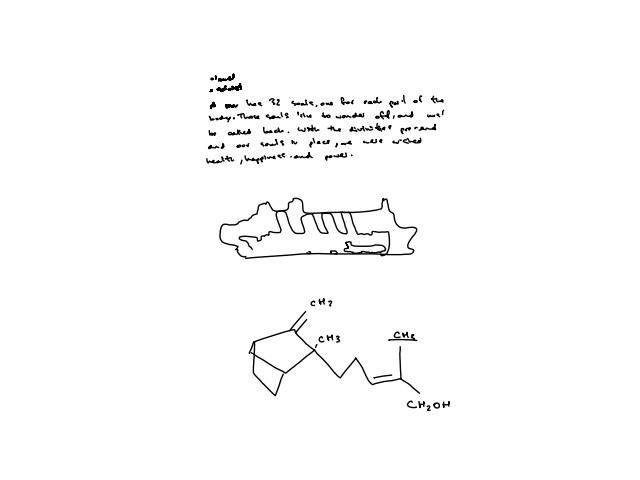 A man has 32 souls, one for each part of the
body. Those souls like to wander off, and must
be called back. With the divinities present
and our souls in place, we were wished
health, happiness and power.
CH2
CH3
CH3
CH2OH